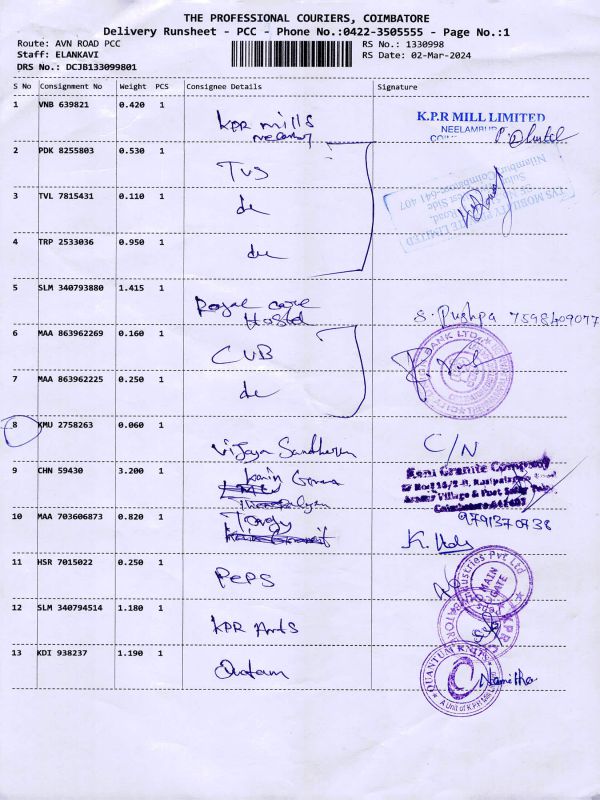 THE PROFESSIONAL COURIERS, COIMBATORE
Delivery Runsheet - PCC - Phone No.:0422-3505555 - Page No.:1
Route: AVN ROAD PCC
Staff: ELANKAVI
DRS No.: DCJB133099801
RS No.: 1330998
RS Date: 02-Mar-2024
S No Consignment No Weight PCS Consignee Details Signature
1 VNB 639821 0.420 1 KPR mills
K.P.R MILL LIMITED
NEELAMBUR
2 PDK 8255803 0.530 1 TVS
TVS MOBILITY PRIVATE LIMITED
Coimbatore-641 407
3 TVL 7815431 0.110 1 do
4 TRP 2533036 0.950 1 do
5 SLM 340793880 1.415 1 Royal care
Hostel S. Pushpa 7598409077
6 MAA 863962269 0.160 1 CUB
BANK LTD
7 MAA 863962225 0.250 1 do
8 KMU 2758263 0.060 1 Vijaya C/N
9 CHN 59430 3.200 1
Keni Granite Company
Village & Post
9791370738
10 MAA 703606873 0.820 1
11 HSR 7015022 0.250 1 PePS
Industries Pvt Ltd
MAIN GATE
12 SLM 340794514 1.180 1 KPR Arts
13 KDI 938237 1.190 1
QUANTUM KNITS
A Unit of K.P.R Mill
Namitha